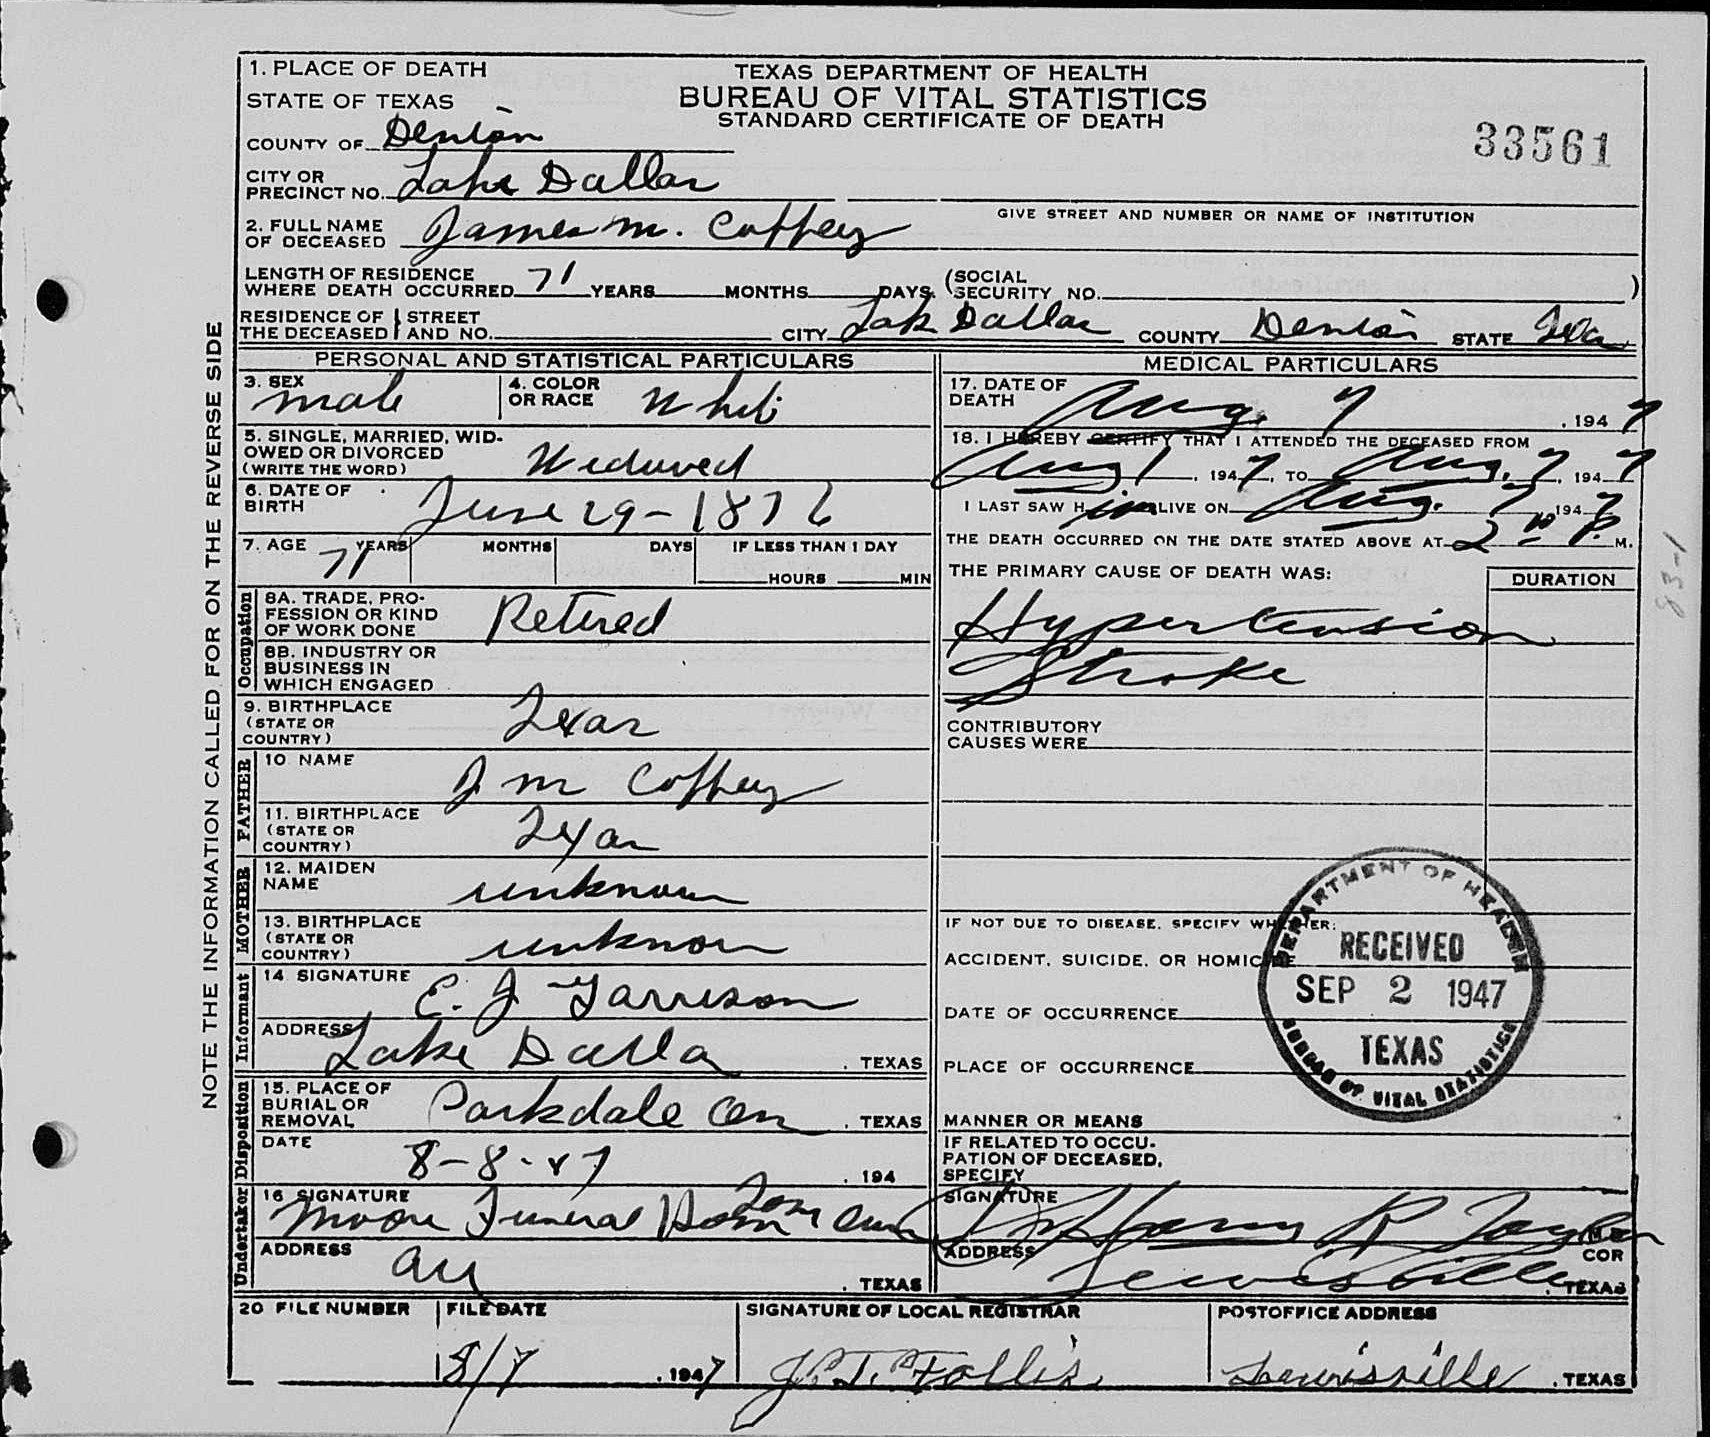 1. PLACE OF DEATH
STATE OF TEXAS
TEXAS DEPARTMENT OF HEALTH
BUREAU OF VITAL STATISTICS
STANDARD CERTIFICATE OF DEATH
33561
COUNTY OF Denton
CITY OR PRECINCT NO. Lake Dallas
GIVE STREET AND NUMBER OR NAME OF INSTITUTION
2. FULL NAME OF DECEASED James M. Coffey
LENGTH OF RESIDENCE WHERE DEATH OCCURRED 71 YEARS MONTHS DAYS. (SOCIAL SECURITY NO. )
RESIDENCE OF THE DECEASED } STREET AND NO. CITY Lak Dallas COUNTY Denton STATE Tex
PERSONAL AND STATISTICAL PARTICULARS
3. SEX male
4. COLOR OR RACE White
5. SINGLE, MARRIED, WIDOWED OR DIVORCED (WRITE THE WORD) Widowed
6. DATE OF BIRTH June 29-1876
7. AGE 71 YEARS MONTHS DAYS IF LESS THAN 1 DAY
HOURS MIN
Occupation
8A. TRADE, PROFESSION OR KIND OF WORK DONE Retired
8B. INDUSTRY OR BUSINESS IN WHICH ENGAGED
9. BIRTHPLACE (STATE OR COUNTRY) Texas
FATHER
10 NAME J M Coffey
11. BIRTHPLACE (STATE OR COUNTRY) Texas
MOTHER
12. MAIDEN NAME unknown
13. BIRTHPLACE (STATE OR COUNTRY) unknown
Informant
14 SIGNATURE E. J Garrison
ADDRESS Lake Dalla . TEXAS
Disposition
15. PLACE OF BURIAL OR REMOVAL Parkdale Cem . TEXAS
DATE 8-8-47 . 194
Undertaker
16 SIGNATURE Moore Funeral Home
ADDRESS . TEXAS
MEDICAL PARTICULARS
17. DATE OF DEATH Aug. 7 . 1947
18. I HEREBY CERTIFY THAT I ATTENDED THE DECEASED FROM
Aug 1 . 1947, TO Aug. 7, 1947
I LAST SAW H im ALIVE ON Aug. 7 1947
THE DEATH OCCURRED ON THE DATE STATED ABOVE AT 2 10 P. M.
THE PRIMARY CAUSE OF DEATH WAS:
DURATION
Hypertension
Stroke
CONTRIBUTORY CAUSES WERE
IF NOT DUE TO DISEASE, SPECIFY WHETHER:
ACCIDENT, SUICIDE, OR HOMICIDE
DATE OF OCCURRENCE
PLACE OF OCCURRENCE
MANNER OR MEANS
IF RELATED TO OCCUPATION OF DECEASED, SPECIFY
SIGNATURE Dr Harry R Taylor M.D.
COR
ADDRESS Lewisville . TEXAS
DEPARTMENT OF HEALTH
RECEIVED
SEP 2 1947
TEXAS
BUREAU OF VITAL STATISTICS
20 FILE NUMBER
FILE DATE 8/7 . 1947
SIGNATURE OF LOCAL REGISTRAR J. T. Follis
POSTOFFICE ADDRESS Lewisville . TEXAS
NOTE THE INFORMATION CALLED FOR ON THE REVERSE SIDE
83-1